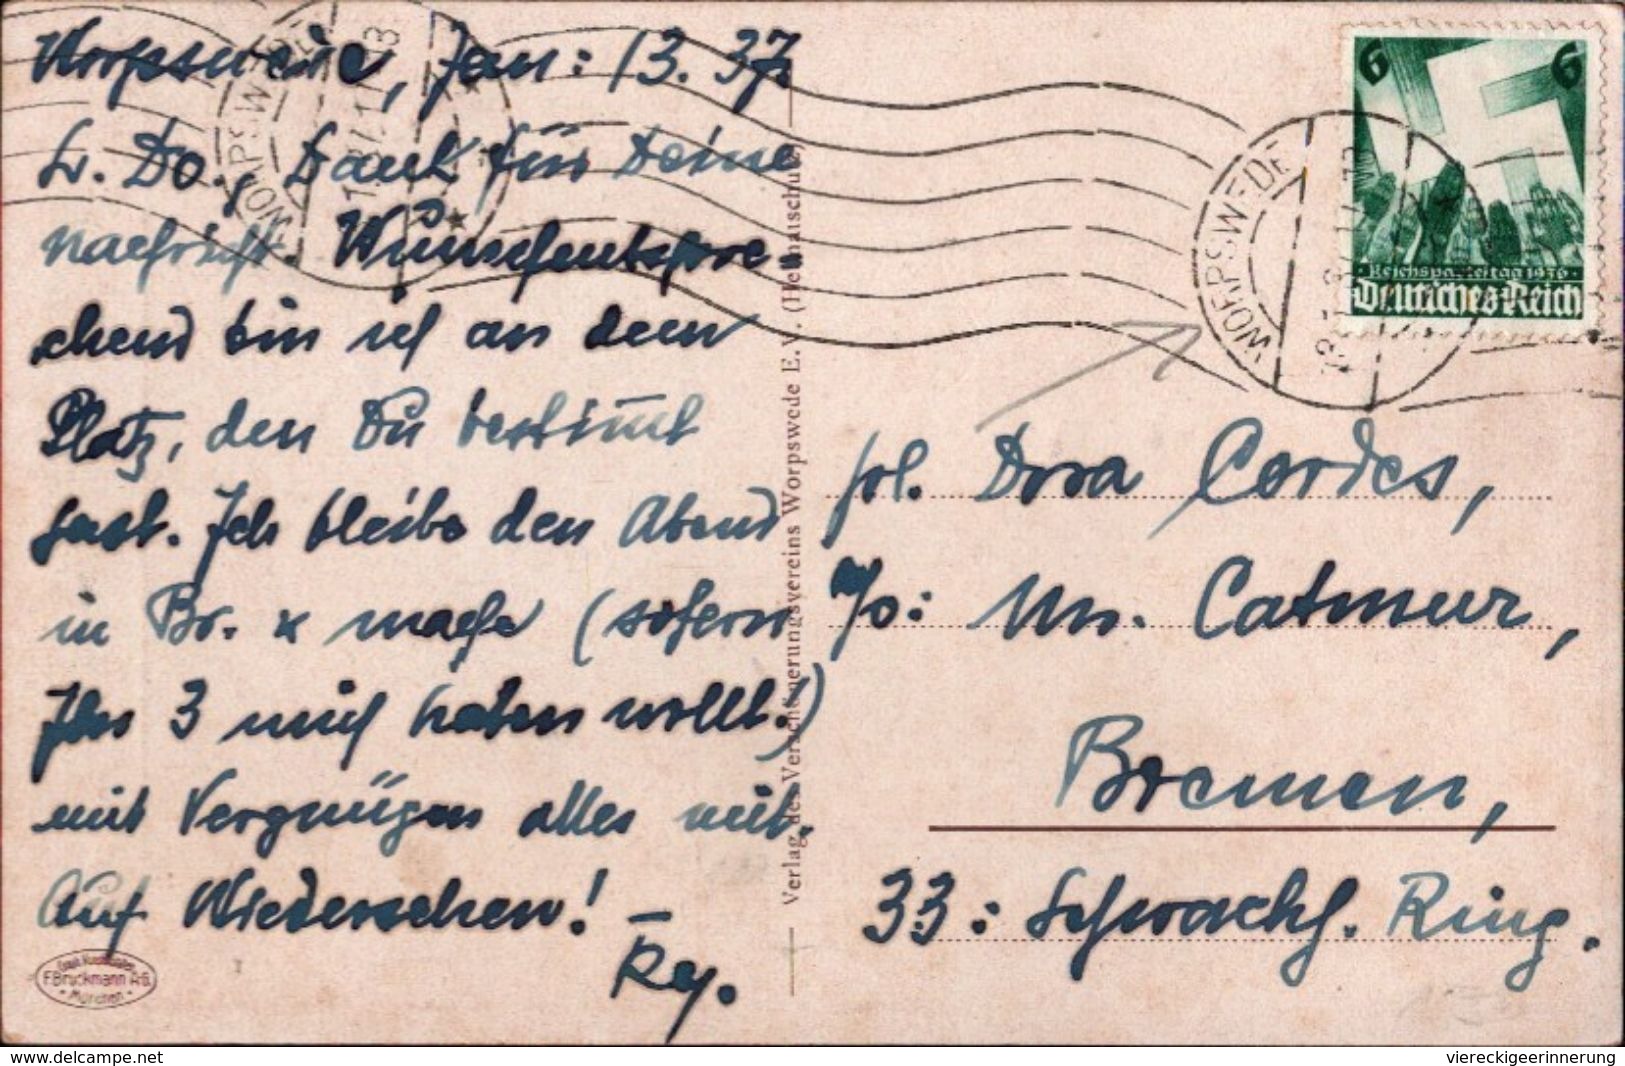 Worpswede, Jan: 13. 37.
L. Do., Dank für Deine
Nachricht. Wunschentspre-
chend bin ich an dem
Platz, den Du bestimmt
hast. Ich bleibe den Abend
in Br. & mache (sofern
Ihr 3 mich haben wollt!)
mit Vergnügen alles mit.
Auf Wiedersehen! –
F. Bruckmann A-G.
München
Verlag des Verschönerungsvereins Worpswede E.V. (Heimatschutz)
WORPSWEDE
WORPSWEDE
6 6
Reichsparteitag 1936
Deutsches Reich
frl. Dora Cordes,
c/o: Mrs. Catmur,
Bremen,
33: Schwachh. Ring.
delcampe.net
viereckigeerinnerung